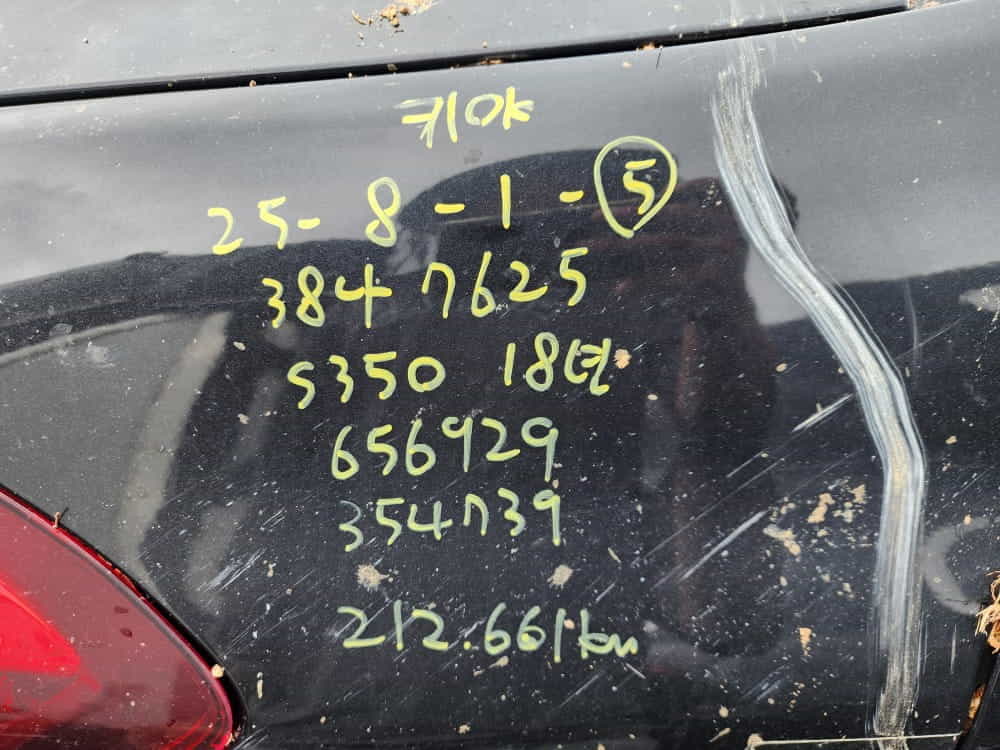 키아
25-8-1-5
384 7625
S350 18년
656929
354739
212.661km